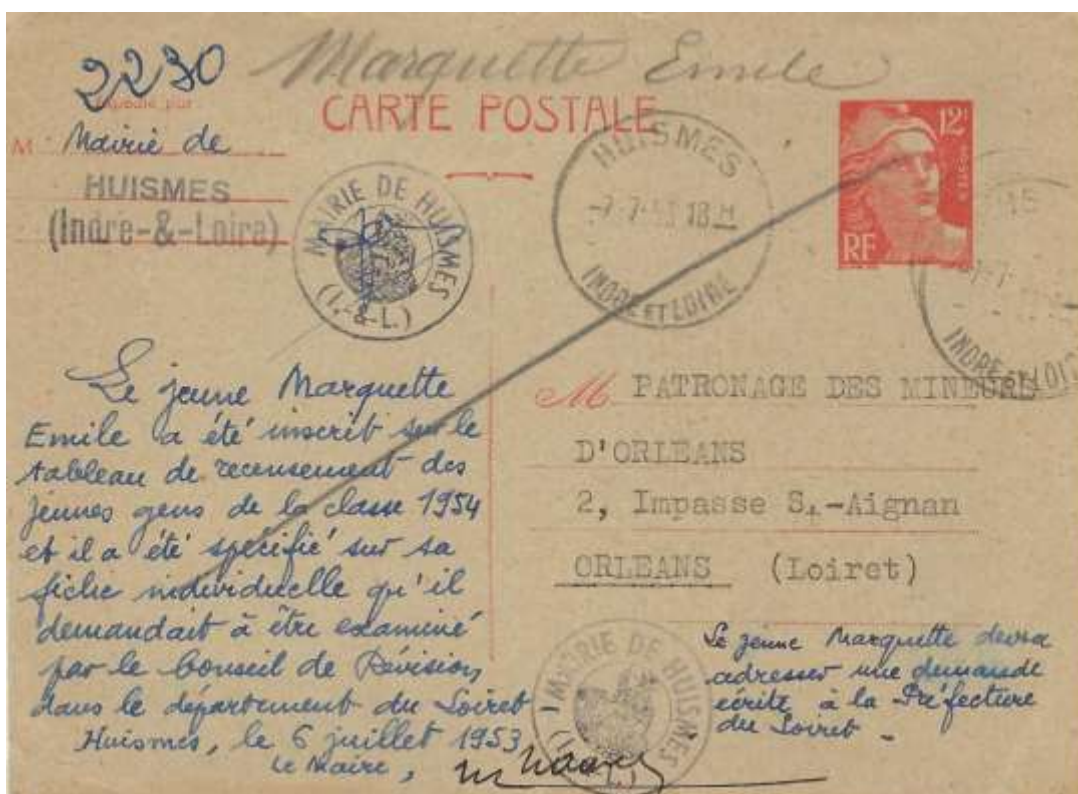 2230
Marquette Emile
CARTE POSTALE
Expédié par
M Mairie de
HUISMES
(Indre-&-Loire)
MAIRIE DE HUISMES
(I.-&-L.)
HUISMES
-7-7-53 18H
INDRE ET LOIRE
12F
RF
INDRE ET LOIRE
Le jeune Marquette
Emile a été inscrit sur le
tableau de recensement des
jeunes gens de la classe 1954
et il a été spécifié sur sa
fiche individuelle qu'il
demandait à être examiné
par le Conseil de Révision
dans le département du Loiret
Huismes, le 6 juillet 1953
Le Maire,
M PATRONAGE DES MINEURS
D'ORLEANS
2, Impasse St-Aignan
ORLEANS (Loiret)
MAIRIE DE HUISMES
Le jeune Marquette devra
adresser une demande
écrite à la Préfecture
du Loiret.